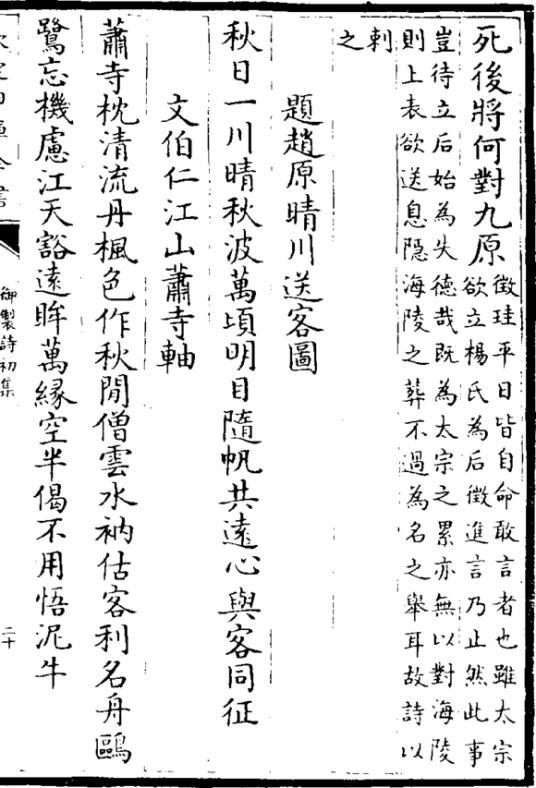 死後將何對九原徵珪平日皆自命敢言者也雖太宗
欲立楊氏為后徵進言乃止然此事
豈待立后始為失德哉既為太宗之累亦無以對海陵
則上表欲送息隠海陵之葬不過為名之舉耳故詩以
刺之
題趙原晴川送客圖
秋日一川晴秋波萬頃明目隨帆共遠心與客同征
文伯仁江山蕭寺軸
蕭寺枕清流丹楓色作秋閒僧雲水衲估客利名舟鷗
鷺忘機慮江天豁遠眸萬緣空半偈不用悟泥牛
御製詩初集
二十